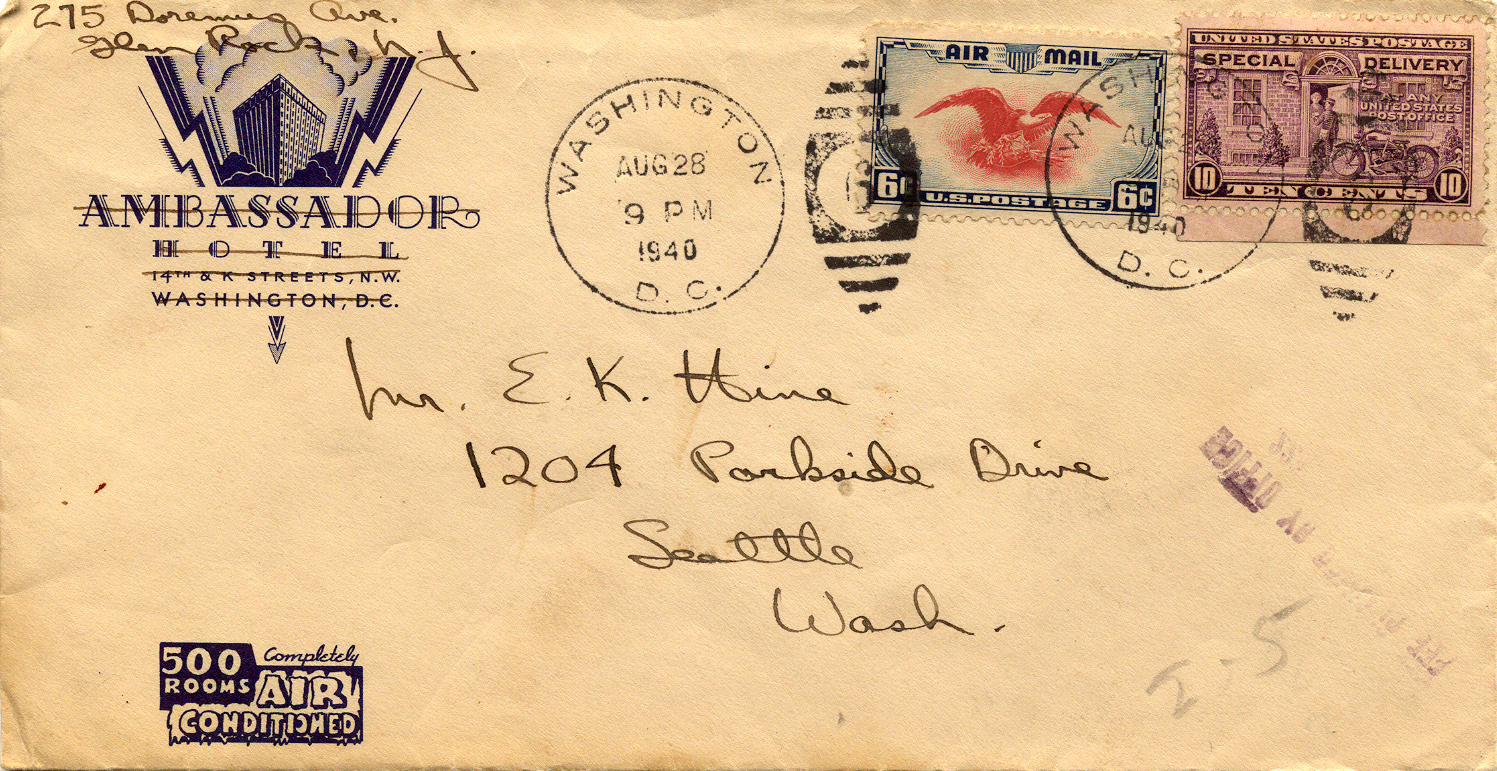 275 Doremus Ave.
Glen Rock, N.J.
AMBASSADOR
HOTEL
14TH & K STREETS, N.W.
WASHINGTON, D.C.
WASHINGTON
AUG 28
9 PM
1940
D. C.
AIR MAIL
6¢ 6¢
U.S. POSTAGE
WASHINGTON
AUG
1940
D. C.
UNITED STATES POSTAGE
SPECIAL DELIVERY
AT ANY
UNITED STATES
POST OFFICE
10 TEN CENTS 10
Mr. E. K. Hine
1204 Parkside Drive
Seattle
Wash.
FEE BY OFFICE
2-5
500
ROOMS
Completely
AIR
CONDITIONED